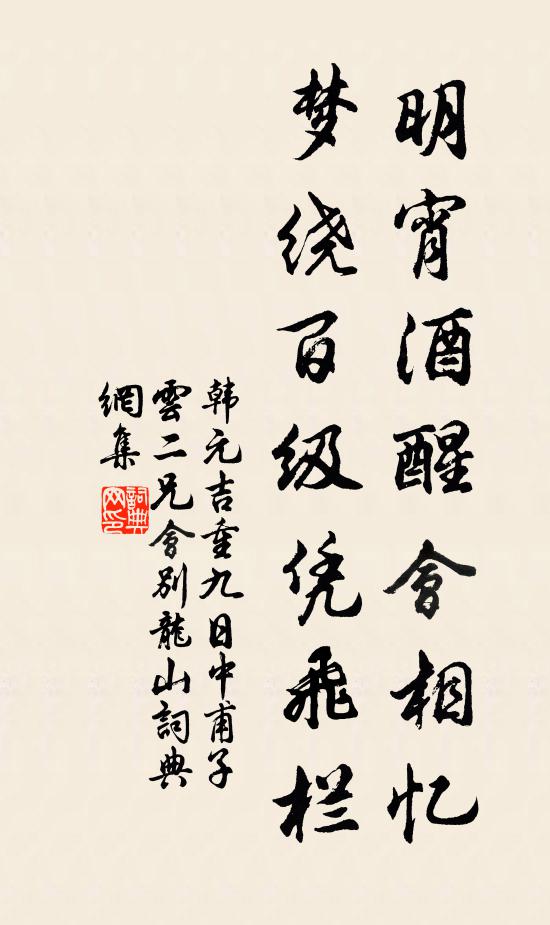 明宵酒醒會相忆
梦绕百级凭飛栏
韩元吉重九日中甫子
雲二兄會别龍山詞典
網集
詞典
网印